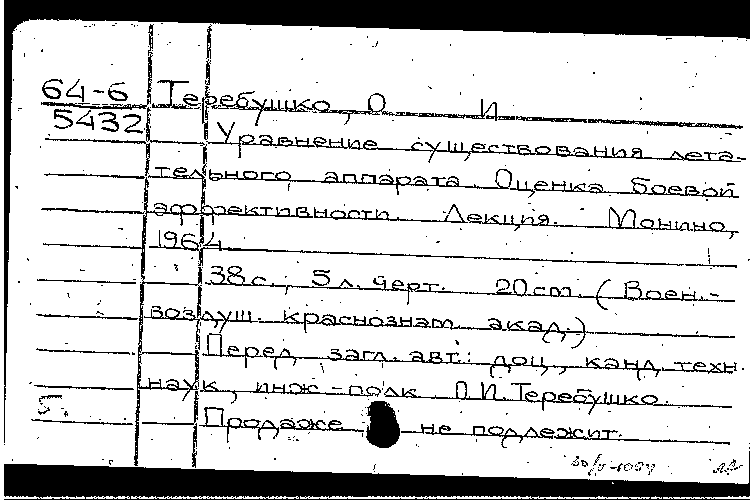 64-6 Теребушко, О И
5432
Уравнение существования лета-
тельного аппарата. Оценка боевой
эффективности. Лекция. Монино,
1964.
38 с., 5 л. черт. 20 cm. (Воен.-
воздуш. краснознам. акад.)
Перед загл. авт.: доц., канд. техн.
наук, инж-полк О.И. Теребушко.
5. Продаже не подлежит.